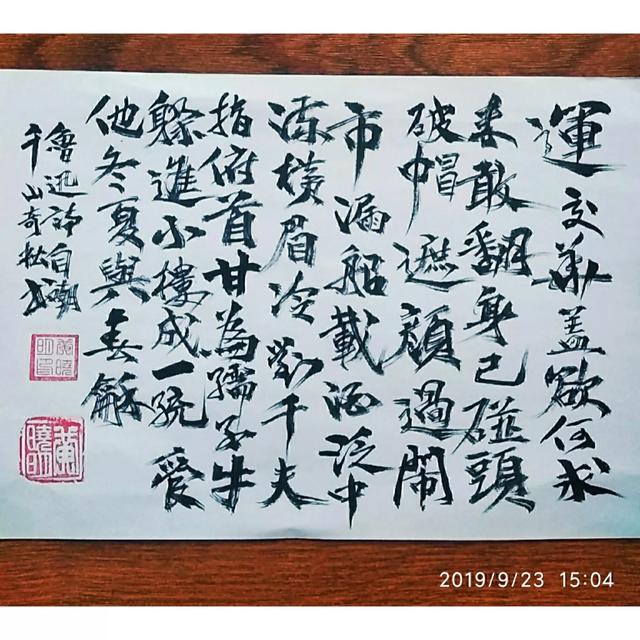 運交華蓋欲何求
未敢翻身已碰頭
破帽遮顏過鬧
市漏船載酒泛中
流橫眉冷對千夫
指俯首甘為孺子牛
躲進小樓成一統管
他冬夏與春
魯迅詩自嘲
千山奇
黃曉明